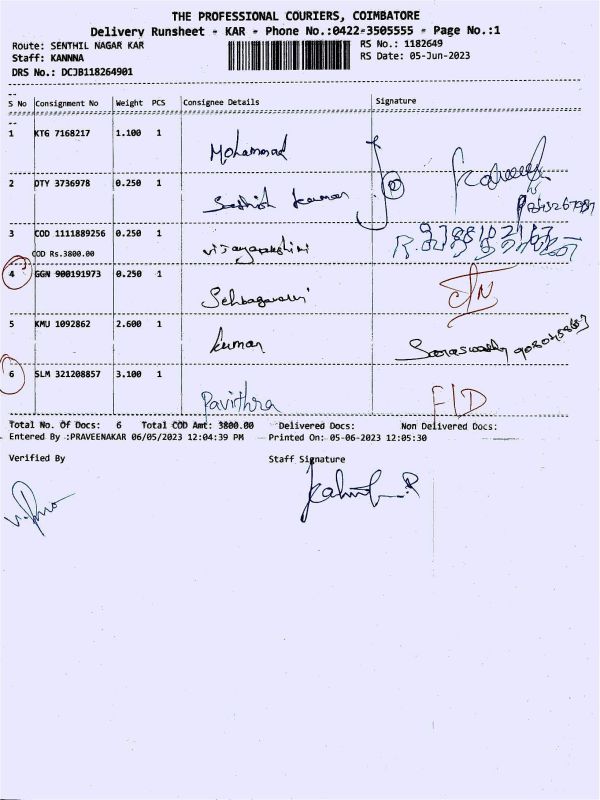 THE PROFESSIONAL COURIERS, COIMBATORE
Delivery Runsheet - KAR - Phone No.:0422-3505555 - Page No.:1
Route: SENTHIL NAGAR KAR
RS No.: 1182649
Staff: KANNNA
RS Date: 05-Jun-2023
DRS No.: DCJB118264901
S No Consignment No Weight PCS Consignee Details Signature
1 KTG 7168217 1.100 1
Mohammad
2 DTY 3736978 0.250 1
Sathish kumar
3 COD 1111889256 0.250 1
COD Rs.3800.00
4 GGN 900191973 0.250 1
5 KMU 1092862 2.600 1
kumar
Saraswathy
6 SLM 321208857 3.100 1
Pavithra
F/D
Total No. Of Docs: 6 Total COD Amt: 3800.00 Delivered Docs: Non Delivered Docs:
Entered By :PRAVEENAKAR 06/05/2023 12:04:39 PM Printed On: 05-06-2023 12:05:30
Verified By Staff Signature